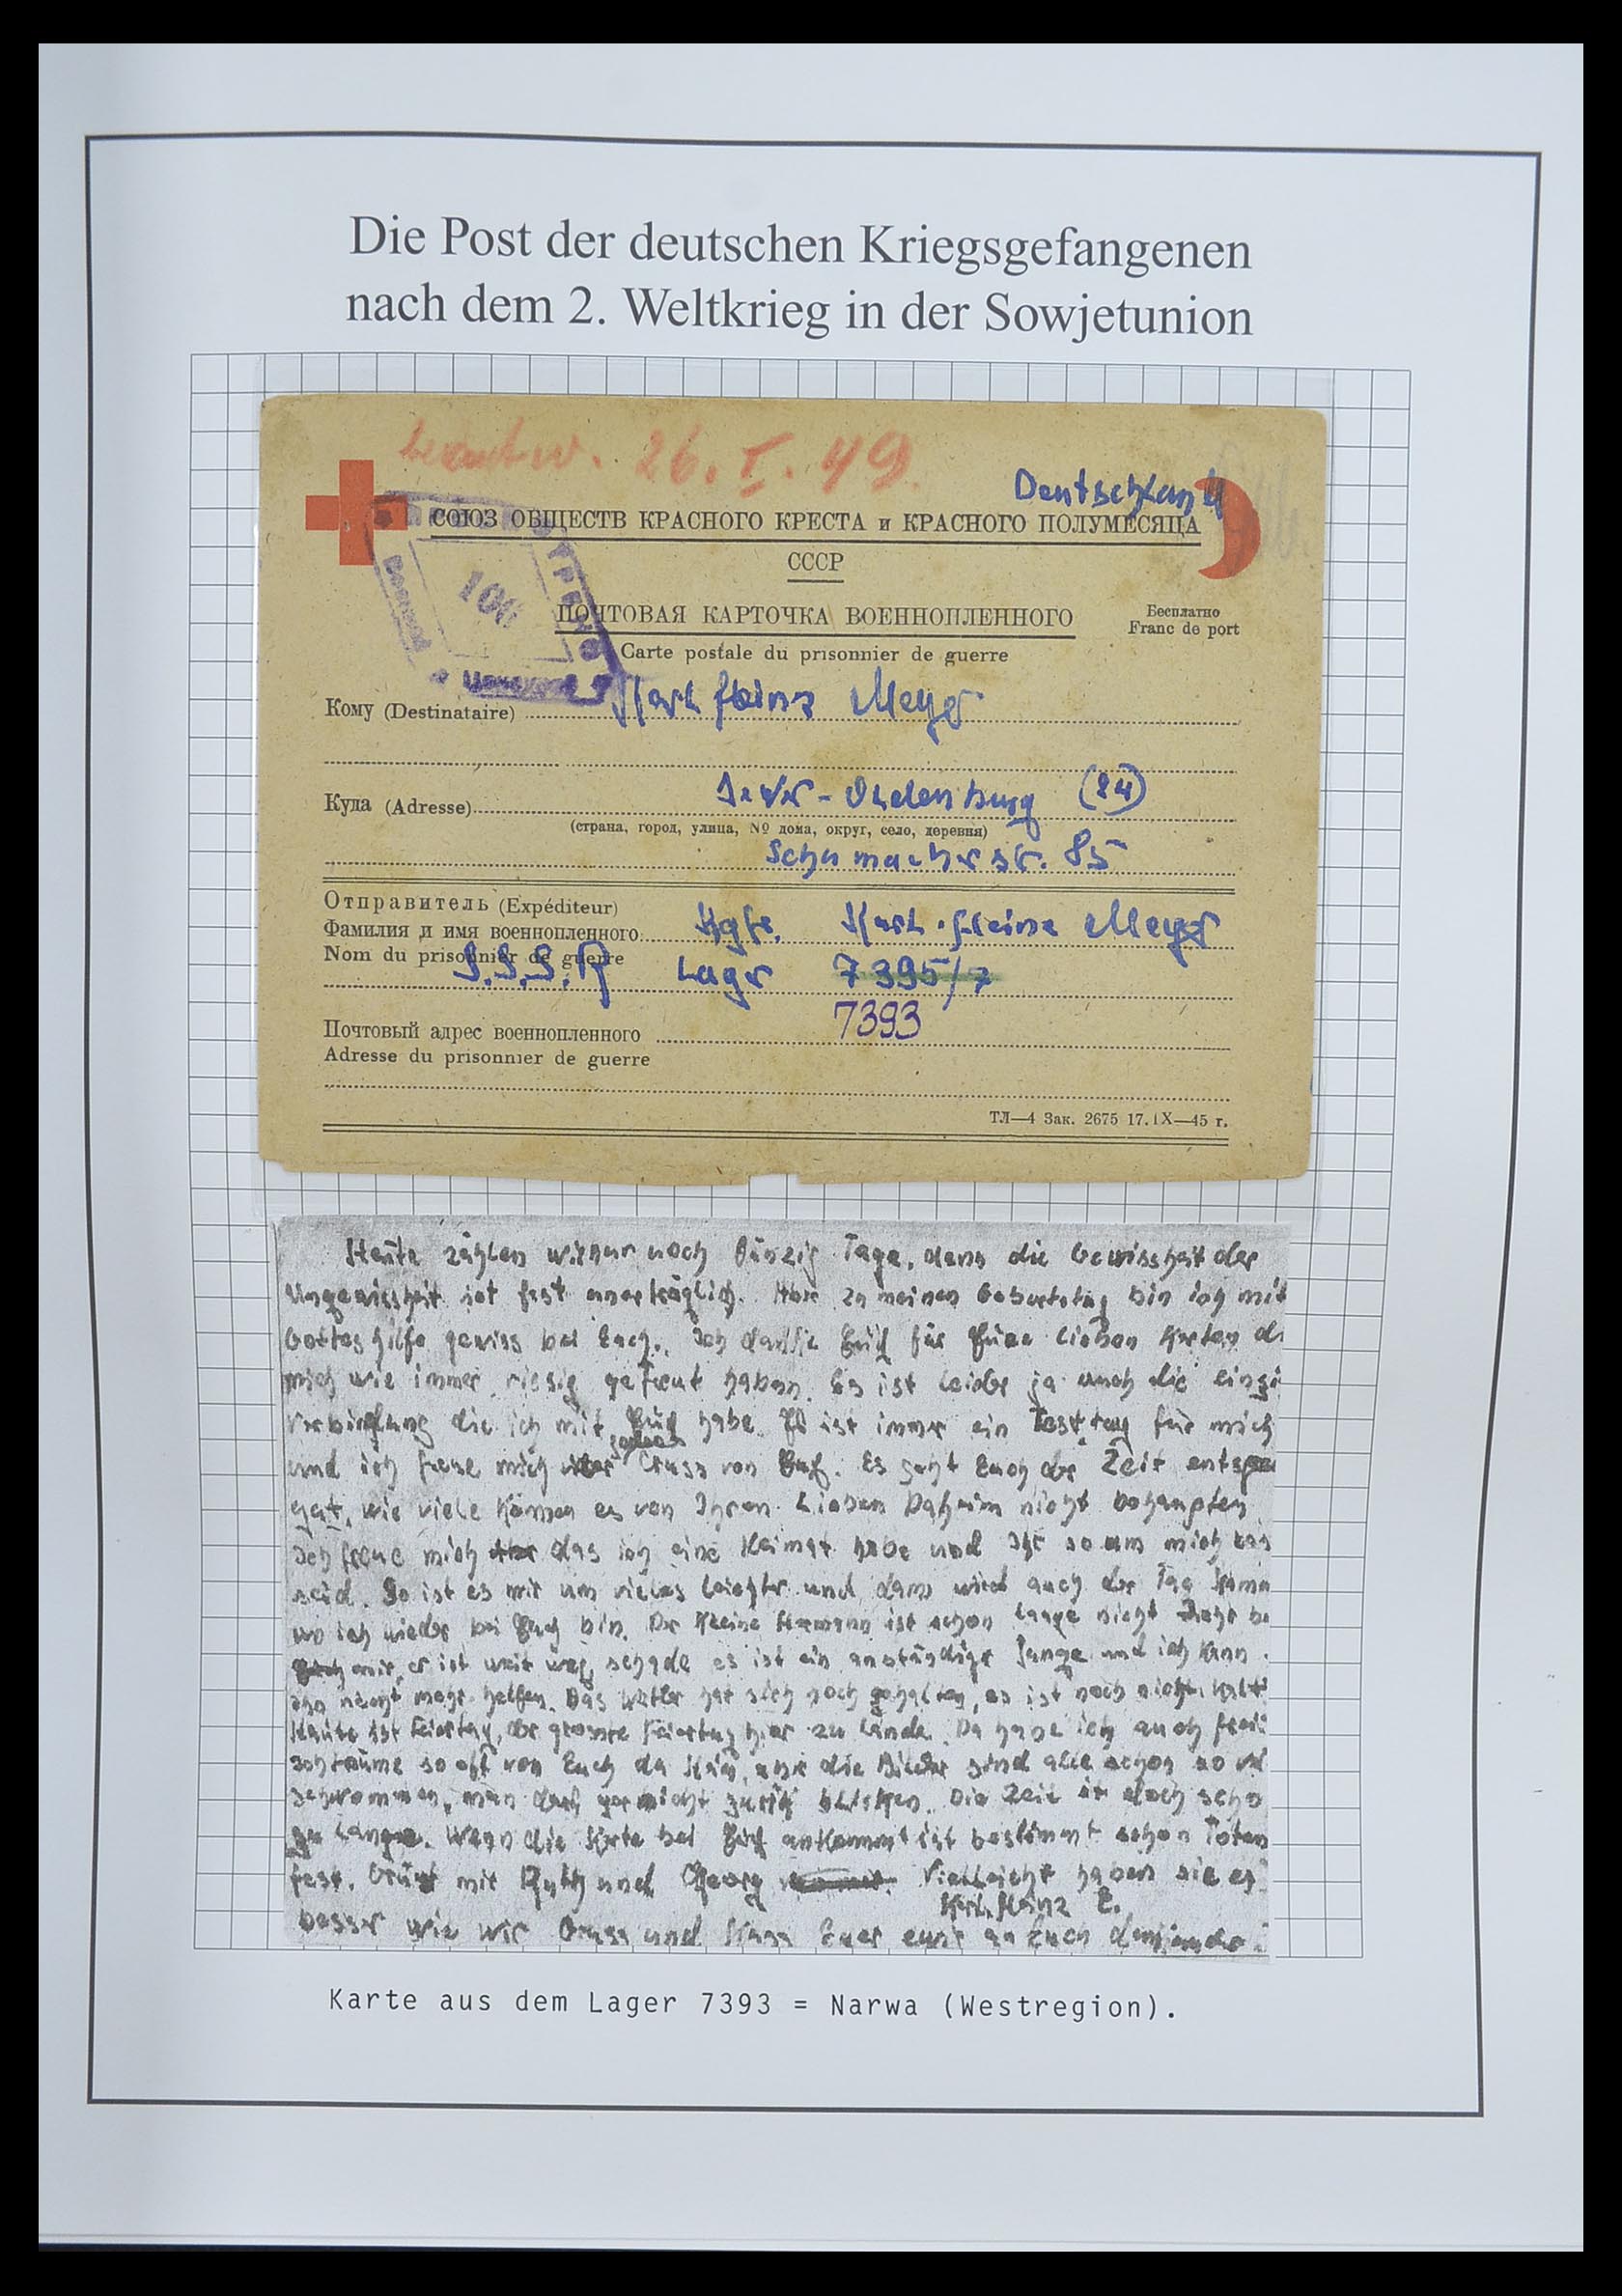 Die Post der deutschen Kriegsgefangenen
nach dem 2. Weltkrieg in der Sowjetunion
beantw. 26. I. 49.
Deutschland
СОЮЗ ОБЩЕСТВ КРАСНОГО КРЕСТА и КРАСНОГО ПОЛУМЕСЯЦА
СССР
106
ПОЧТОВАЯ КАРТОЧКА ВОЕННОПЛЕННОГО
Бесплатно
Franc de port
Carte postale du prisonnier de guerre
Кому (Destinataire) Karl Heinz Meyer
Куда (Adresse) Oldenburg (24)
(страна, город, улица, № дома, округ, село, деревня)
85
Отправитель (Expéditeur)
Фамилия и имя военнопленного Kgfr. Karl-Heinz Meyer
Nom du prisonnier de guerre
S.S.S.R Lager 7395/7
7393
Почтовый адрес военнопленного
Adresse du prisonnier de guerre
ТЛ—4 Зак. 2675 17.IX—45 г.
Heute zählen wir nur noch Tage, denn die Gewissheit der
Ungewissheit ist fast unerträglich. Aber zu meinen Geburtstag bin ich mit
Gottes Hilfe gewiss bei Euch. Ich danke Euch für Eure lieben Karten
mich wie immer riesig gefreut haben. Es ist leider ja auch die
Verbindung die ich mit Euch habe. Es ist immer ein Festtag für mich
und ich freue mich über jeden Gruss von Euch. Es geht Euch der Zeit
gut, wie viele können es von Ihren Lieben Daheim nicht behaupten
Ich freue mich das ich eine Heimat habe und Ihr so um mich
seid. So ist es mir um vieles leichter und dann wird auch der Tag
wo ich wieder bei Euch bin. Der kleine Hermann ist schon lange nicht mehr
mir, er ist weit weg, schade es ist ein anständiger Junge und ich kann
ihn nicht mehr helfen. Das Wetter hat sich noch gehalten, es ist noch nicht kalt
Heute ist Feiertag, der grösste Feiertag hier zu Lande. Da habe ich auch frei
Ich träume so oft von Euch aber die Bilder sind alle schon so
schwommen, man darf gar nicht zurück blicken. Die Zeit ist doch
zu lange. Wenn die Karte bei Euch ankommt ist bestimmt schon Toten
fest. Grüst mir Ruth und Georg Vielleicht haben sie es
Karl Heinz
besser wie wir Gruss und Kuss Euer an Euch
Karte aus dem Lager 7393 = Narwa (Westregion).